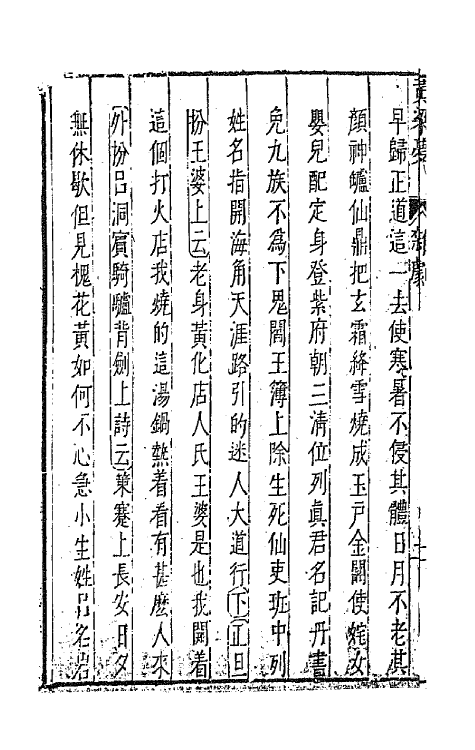 黃粱夢 雜劇
早歸正道這一去使寒暑不侵其體日月不老其
顏神爐仙鼎把玄霜絳雪燒成玉戶金關使姹女
嬰兒配定身登紫府朝三清位列真君名記丹書
免九族不爲下鬼閻王簿上除生死仙吏班中列
姓名指開海角天涯路引的迷人大道行下正旦
扮王婆上云老身黃化店人氏王婆是也我開着
這個打火店我燒的這湯鍋熱着看有甚麽人來
外扮呂洞賓騎驢背劍上詩云策蹇上長安日夕
無休歇但見槐花黃如何不心急小生姓呂名岩